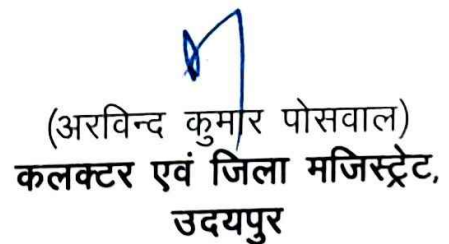 (अरविन्द कुमार पोसवाल)
कलक्टर एवं जिला मजिस्ट्रेट,
उदयपुर